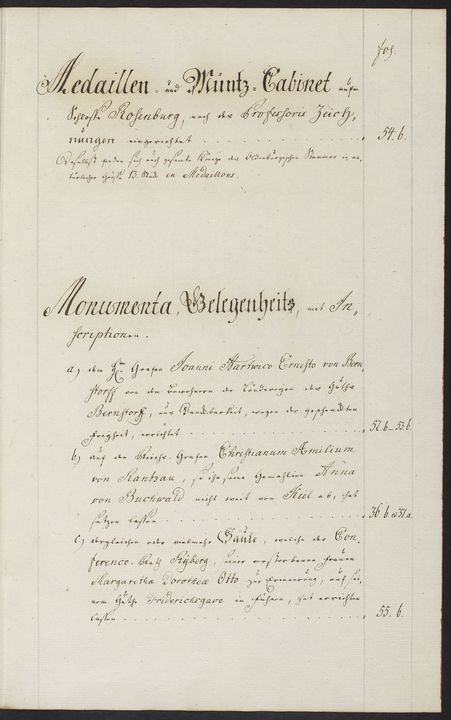 fol.
Medaillen- und Müntz-Cabinet aufm
Schlosse Rosenburg, nach des Professoris Zeich-
nungen eingerichtet . . . . . 54. b.
Daselbst finden sich auch gesamte Könige des Oldenburgischen Stammes in
13. Stück en Medaillons.
Monumenta, Gelegenheits, mit In-
scriptionen.
a) dem Grafen Joanni Hartwico Ernesto von Bern-
storff von den Bewohnern der Ländereyen des Guths
Bernstorff, zur Danckbarkeit, wegen der geschenckten
Freyheit, errichtet . . . . . 52. b - 53. b.
b) auf den Reichs-Grafen Christianum Æmilium
von Rantzau, so ihm seine Gemahlinn Anna
von Buchwald nicht weit von Kiel ab, hat
setzen lassen . . . . . 36. b. & 37. a.
c) desgleichen oder vielmehr Säule, welche der Con-
ference-Rath Ryberg, seiner verstorbenen Frauen
Margaretha Dorothea Otto zur Erinnerung, auf sei-
nem Guthe Friderichsgave in Führen, hat errichten
lassen . . . . . 55. b.